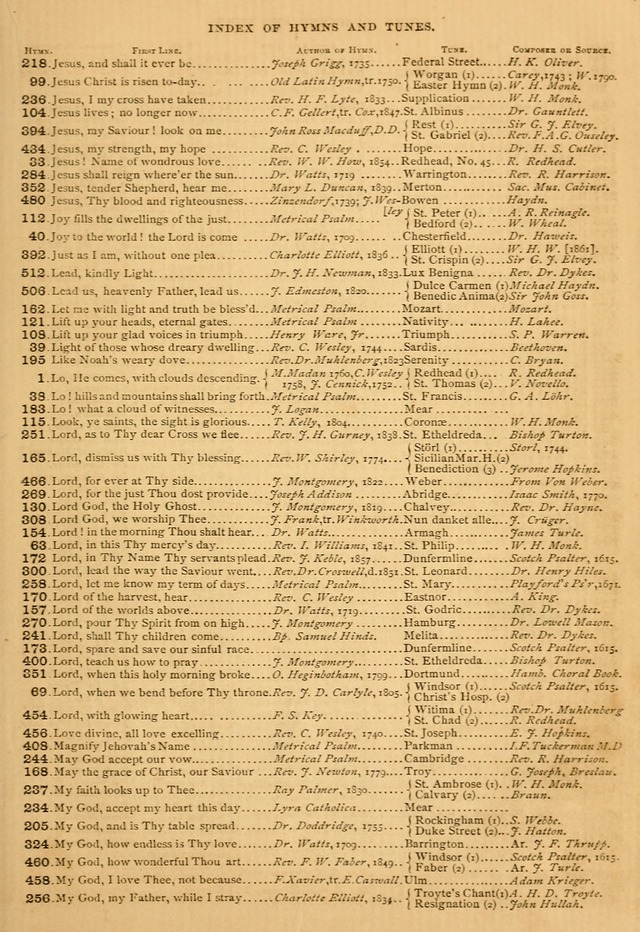 INDEX OF HYMNS AND TUNES.
HYMN. FIRST LINE. AUTHOR OF HYMN. TUNE. COMPOSER OR SOURCE.
218. Jesus, and shall it ever be........Joseph Grigg, 1735......Federal Street....H. K. Oliver.
99. Jesus Christ is risen to-day.. . ....Old Latin Hymn, tr. 1750. { Worgan (1)....Carey, 1743 ; W. 1790.
{ Easter Hymn (2).W. H. Monk.
236. Jesus, I my cross have taken......Rev. H. F. Lyte, 1833...Supplication ....W. H. Monk.
104. Jesus lives; no longer now........C. F. Gellert, tr. Cox, 1847. St. Albinus .... Dr. Gauntlett.
394. Jesus, my Saviour! look on me....John Ross Macduff, D.D. { Rest (1).......Sir G. J. Elvey.
{ St. Gabriel (2)..Rev. F. A. G. Ouseley.
434. Jesus, my strength, my hope ......Rev. C. Wesley ........Hope..........Dr. H. S. Cutler.
33. Jesus! Name of wondrous love.....Rev. W. W. How, 1854..Redhead, No. 45...R. Redhead.
284. Jesus shall reign where'er the sun..Dr. Watts, 1719 ......Warrington......Rev. R. Harrison.
352. Jesus, tender Shepherd, hear me...Mary L. Duncan, 1839..Merton.........Sac. Mus. Cabinet.
480. Jesus, Thy blood and righteousness..Zinzendorf, 1739; J. Wes-Bowen ........Haydn.
112. Joy fills the dwellings of the just....Metrical Psalm..... [ley { St. Peter (1)....A. R. Reinagle.
{ Bedford (2).. ...W. Wheal.
40. Joy to the world! the Lord is come ...Dr. Watts, 1709.......Chesterfield.....Dr. Haweis.
392. Just as I am, without one plea.....Charlotte Elliott, 1836 ... { Elliott (1)......W. H. W. [1861].
{ St. Crispin (2)...Sir G. J. Elvey.
512. Lead, kindly Light..............Dr. J. H. Newman, 1833. Lux Benigna ....Rev. Dr. Dykes.
506. Lead us, heavenly Father, lead us...J. Edmeston, 1820...... { Dulce Carmen (1) Michael Haydn.
{ Benedic Anima(2) Sir John Goss.
162. Let me with light and truth be bless'd..Metrical Psalm.......Mozart.........Mozart.
121. Lift up your heads, eternal gates....Metrical Psalm.......Nativity... ......H. Lahee.
108. Lift up your glad voices in triumph...Henry Ware, Jr......Triumph........S. P. Warren.
39. Light of those whose dreary dwelling...Rev. C. Wesley, 1744...Sardis..........Beethoven.
195 Like Noah's weary dove..........Rev. Dr. Muhlenberg, 1823 Serenity .......C. Bryan.
1. Lo, He comes, with clouds descending. { M. Madan 1760, C. Wesley { Redhead (1).....R. Redhead.
1758, J. Cennick, 1752... { St. Thomas (2)..V. Novello.
38 Lo! hills and mountains shall bring forth. Metrical Psalm......St. Francis......G. A. Löhr.
183. Lo! what a cloud of witnesses......J. Logan............Mear .... ......
115. Look, ye saints, the sight is glorious....T. Kelly, 1804........Coronæ........W. H. Monk.
251. Lord, as to Thy dear Cross we flee....Rev. J. H. Gurney, 1838. St. Etheldreda...Bishop Turton.
165. Lord, dismiss us with Thy blessing...Rev. W. Shirley, 1774.... { Störl (1).......Storl, 1744.
{ Sicilian Mar. H.(2)
{ Benediction (3) ..Jerome Hopkins.
466. Lord, for ever at Thy side.........J. Montgomery, 1822....Weber.........From Von Weber.
269. Lord, for the just Thou dost provide....Joseph Addison ......Abridge.........Isaac Smith, 1770.
130. Lord God, the Holy Ghost.........J. Montgomery, 1819....Chalvey........Rev. Dr. Hayne.
308. Lord God, we worship Thee......J. Frank, tr. Winkworth. Nun danket alle....J. Crüger.
154. Lord! in the morning Thou shalt hear...Dr. Watts...........Armagh........James Turle.
63. Lord, in this Thy mercy's day......Rev. I. Williams, 1841...St. Philip........W. H. Monk.
172. Lord, in Thy Name Thy servants plead. Rev. J. Keble, 1857.....Dunfermline.....Scotch Psalter, 1615.
300. Lord, lead the way the Saviour went...Rev. Dr. Croswell, d. 1851. St. Leonard....Dr. Henry Hiles.
258. Lord, let me know my term of days....Metrical Psalm.......St. Mary.......Playford's Ps'r, 1671.
170. Lord of the harvest, hear.........Rev. C. Wesley .......Eastnor........A. King.
157. Lord of the worlds above.........Dr. Watts, 1719.......St. Godric.......Rev. Dr. Dykes.
270. Lord, pour Thy Spirit from on high....J. Montgomery.......Hamburg.......Dr. Lowell Mason.
241. Lord, shall Thy children come.....Bp. Samuel Hinds.....Melita..........Rev. Dr. Dykes.
173. Lord, spare and save our sinful race.................Dunfermline.....Scotch Psalter, 1615.
400. Lord, teach us how to pray........J. Montgomery.......St. Etheldreda...Bishop Turton.
351. Lord, when this holy morning broke...O. Heginbotham, 1799...Dortmund.....Hamb. Choral Book.
69. Lord, when we bend before Thy throne. Rev. J. D. Carlyle, 1805. { Windsor (1).....Scotch Psalter, 1615.
{ Christ's Hosp. (2)
454. Lord, with glowing heart..........F. S. Key............ { Witima (1)......Rev. Dr. Muhlenberg
{ St. Chad (2).....R. Redhead.
456. Love divine, all love excelling.....Rev. C. Wesley, 1740....St. Joseph.......E. J. Hopkins.
408. Magnify Jehovah's Name.........Metrical Psalm.......Parkman .......I. F. Tuckerman M.D
244. May God accept our vow.........Metrical Psalm.......Cambridge .....Rev. R. Harrison.
168. May the grace of Christ, our Saviour ...Rev. J. Newton, 1779....Troy..........G. Joseph, Breslau.
237. My faith looks up to Thee.........Ray Palmer, 1830...... { St. Ambrose (1)..W. H. Monk.
{ Calvary (2).....Braun.
234. My God, accept my heart this day....Lyra Catholica.......Mear ..........
205. My God, and is Thy table spread....Dr. Doddridge, 1755..... { Rockingham (1)..S. Webbe.
{ Duke Street (2)...J. Hatton.
324. My God, how endless is Thy love....Dr. Watts, 1709.......Barrington......Ar. J. F. Thrupp.
460. My God, how wonderful Thou art....Rev. F. W. Faber, 1849... { Windsor (1).....Scotch Psalter, 1615.
{ Faber (2) ......Ar. J. Turle.
458. My God, I love Thee, not because....F. Xavier, tr. E. Caswall. Ulm..........Adam Krieger.
256. My God, my Father, while I stray....Charlotte Elliott, 1834... { Troyte's Chant(1) A. H. D. Troyte.
{ Resignation (2) ..John Hullah.